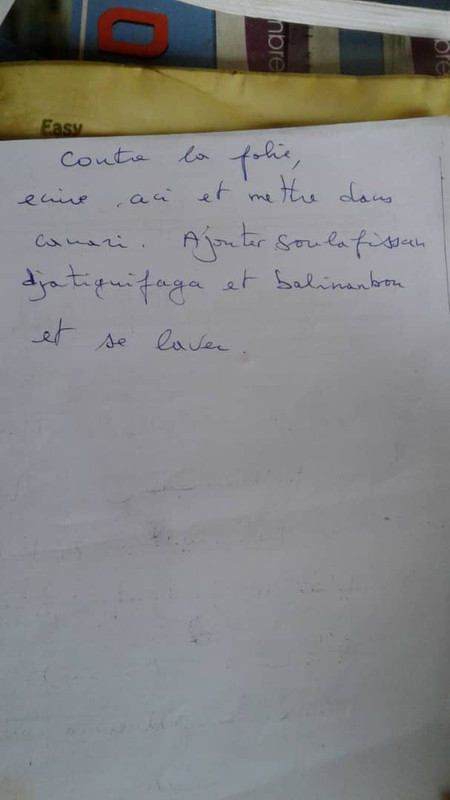 mbre
bre
Easy
Contre la folie,
ecrire, aci et mettre dans
canari. Ajouter soulafissan
djatiguifaga et balinanbou
et se laver.